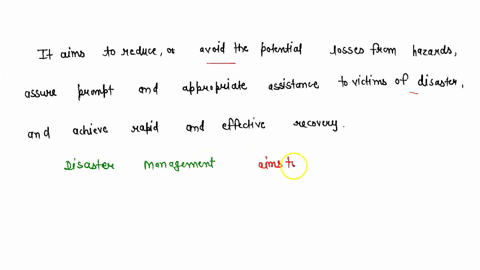 It aims to reduce, or avoid the potential losses from hazards,
assure prompt and appropriate assistance to victims of disaster,
and achieve rapid and effective recovery.
Disaster management aims t